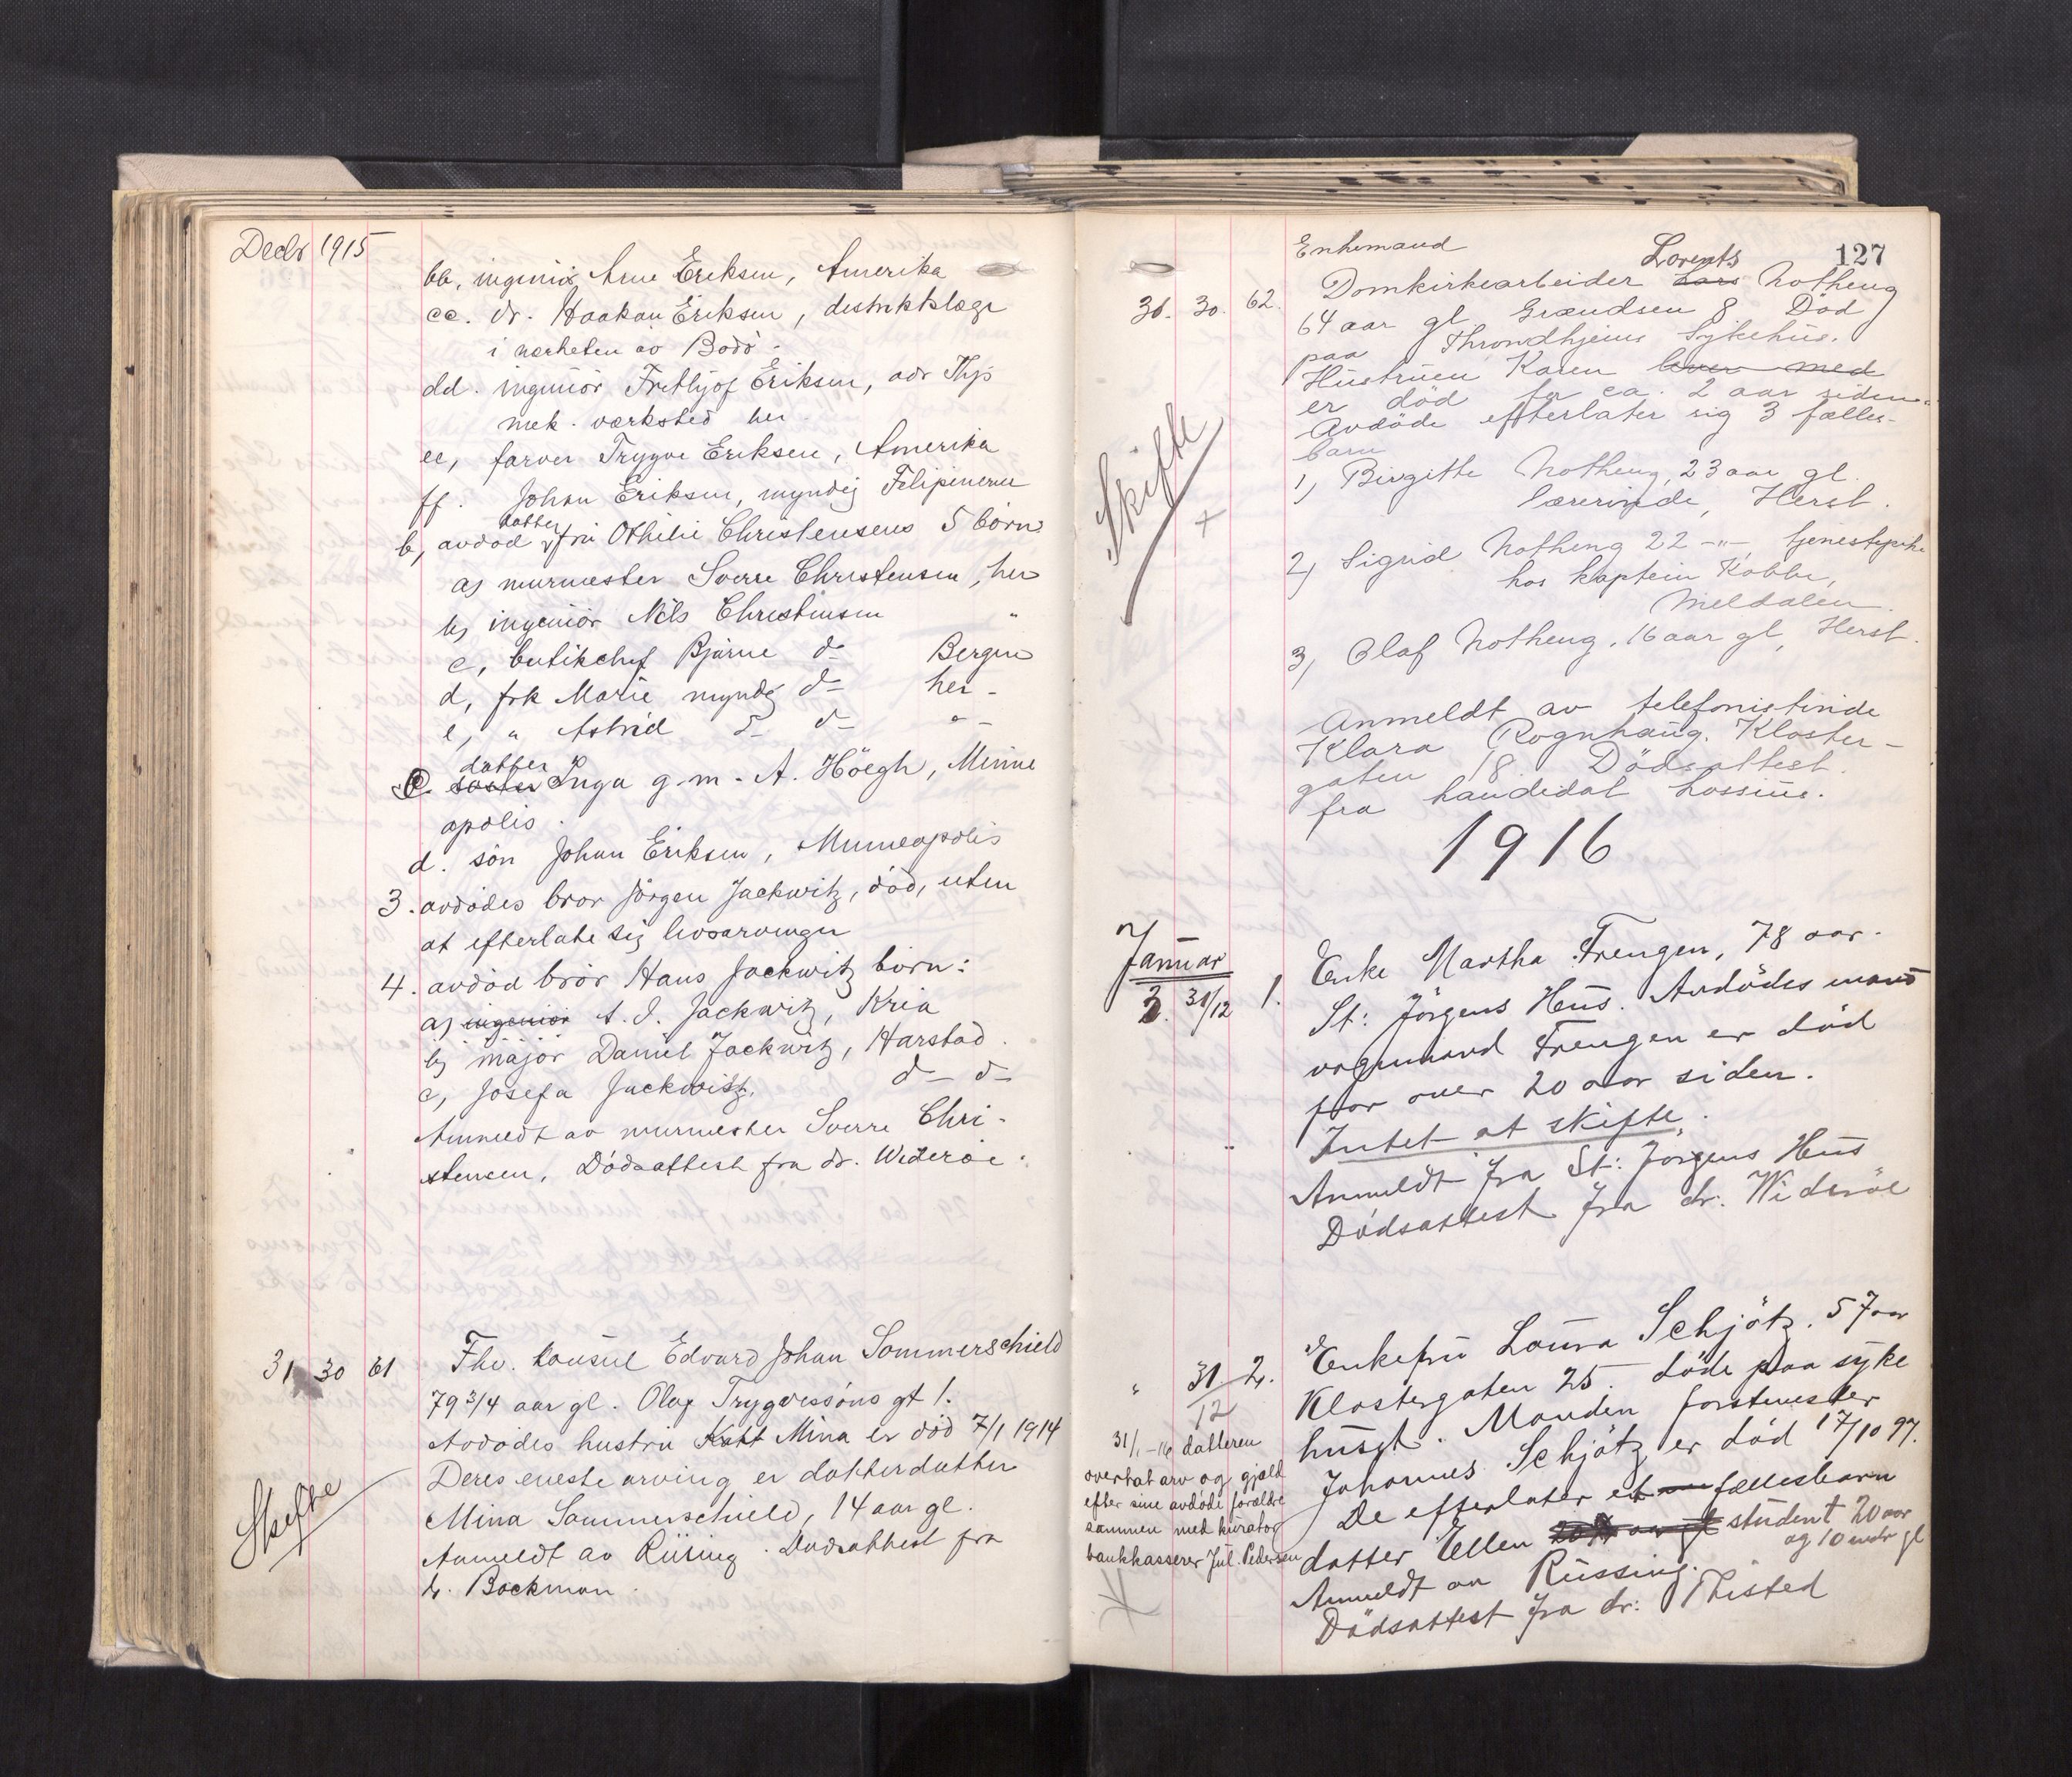 Decbr 1915
bb, ingeniør Arne Eriksen, Amerika
cc. dr. Haakon Eriksen, distriktslæge
i nærheten av Bodö.
dd. ingeniör Frithjof Eriksen, adr Thjs
mek. værksted her.
ee, farver Trygve Eriksen, Amerika
ff. Johan Eriksen, myndig Filipinerne
datter
b, avdöd fru Othilie Christensens 5 börn:
a) murmester Sverre Christensen, her
b) ingeniör Nils Christensen "
c, butikchef Bjarne do Bergen
d, frk Marie myndig do her -
e, " Astrid do do " -
datter
c. söster Inga g. m. A. Höegh, Minne
apolis.
d. sön Johan Eriksen, Minneapolis
3. avdödes bror Jörgen Jackwitz, död, uten
at efterlate sig livsarvinger
4. avdöd bror Hans Jackwitz börn:
a) ingeniör A. J. Jackwitz, Kria
b) major Daniel Jackwitz, Harstad.
c, Josefa Jackwitz, do do
Anmeldt av murmester Sverre Chri-
stensen, Dödsattest fra dr. Wideröe.
31 30 61 Fhv. konsul Edvard Johan Sommerschield
79 3/4 aar gl. Olav Trygvessöns gt 1.
Avdödes hustru Kath Mina er död 7/1 1914
Deres eneste arving er datterdatter
Mina Sommerschield, 14 aar gl.
Skifte
Anmeldt av Rüsing. Dödsattest fra
dr. Backman.
127
Enkemand
Lorents
31. 30. 62. Domkirkearbeider Lars Notheng
64 aar gl Grændsen 8 Död
paa Throndhjems Sykehus.
Hustruen Karen lever med
er död for ca. 2 aar siden.
Avdöde efterlater sig 3 fælles-
barn
Skifte
1) Birgitte Notheng, 23 aar gl.
lærerinde, Herst.
2) Sigrid Notheng 22 -"- tjenestepike
hos kaptein Kobbe,
Meldalen.
3) Olaf Notheng, 16 aar gl, Herst.
Anmeldt av telefonistinde
Klara Rognhaug. Kloster-
gaten 18. Dödsattest
fra kandidat Lossius.
1916
Januar
3. 31/12 1. Enke Martha Frengen, 78 aar.
St: Jörgens Hus. Avdödes mand
vognmand Frengen er död
for over 20 aar siden.
Intet at skifte.
Anmeldt fra St: Jörgens Hus
Dödsattest fra dr. Wideröe
" 31/12 2. Enkefru Laura Schjötz. 57 aar
Klostergaten 25. döde paa syke
huset. Manden forstmester
Johannes Schjötz er död 17/10 97.
De efterlater et fællesbarn
datter Ellen student 20 aar
og 10 mdr gl
Anmeldt av Rüssing.
Dödsattest fra dr: Thisted
31/1-16 datteren
overtat arv og gjæld
efter sine avdöde forældre
sammen med kurator
bankkasserer Jul. Pedersen